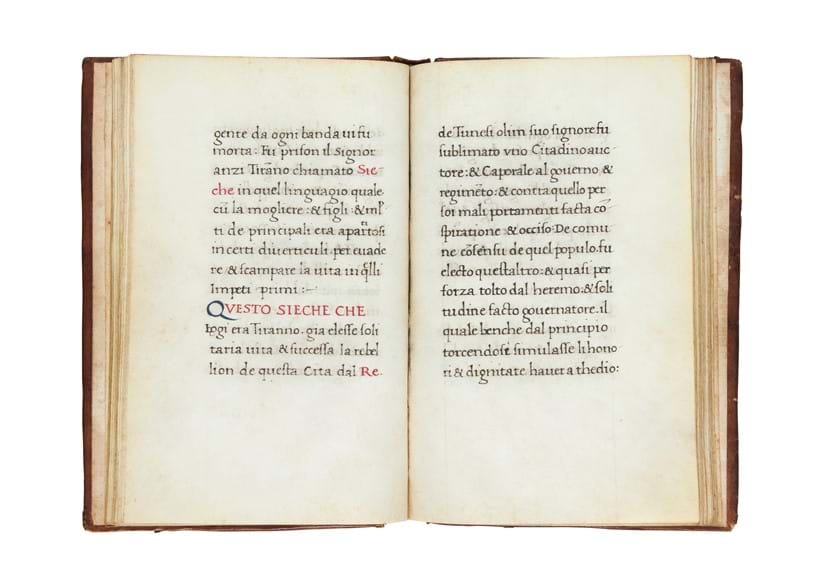 gente da ogni banda ui fu
morta: Fu prison il Signor
anzi Tirāno chiamato Sie-
che in quel linguagio quale
cū la mogliere: & figli: & mlͭ
ti de principali era apartosi
in certi diuerticuli per euade
re & scampare la uita in q̄lli
Impeti primi:~
QVESTO SIECHE CHE
hogi era Tiranno. gia elesse soli
taria uita & successa la rebel
lion de questa Cita dal Re.
de Tunesi olim suo signore fu
sublimato vno Citadino auc-
tore: & Caporale al gouerno &
regimēto: & contra quello per
soi mali portamenti facta cō
spiratione & occiso De comu
ne cōsensu de quel populo. fu
electo questaltro: & quasi per
forza tolto dal heremo: & soli
tudine facto gouernatore. il
quale benche dal principio
torcendose simulasse li hono
ri & dignitate hauer a thedio: